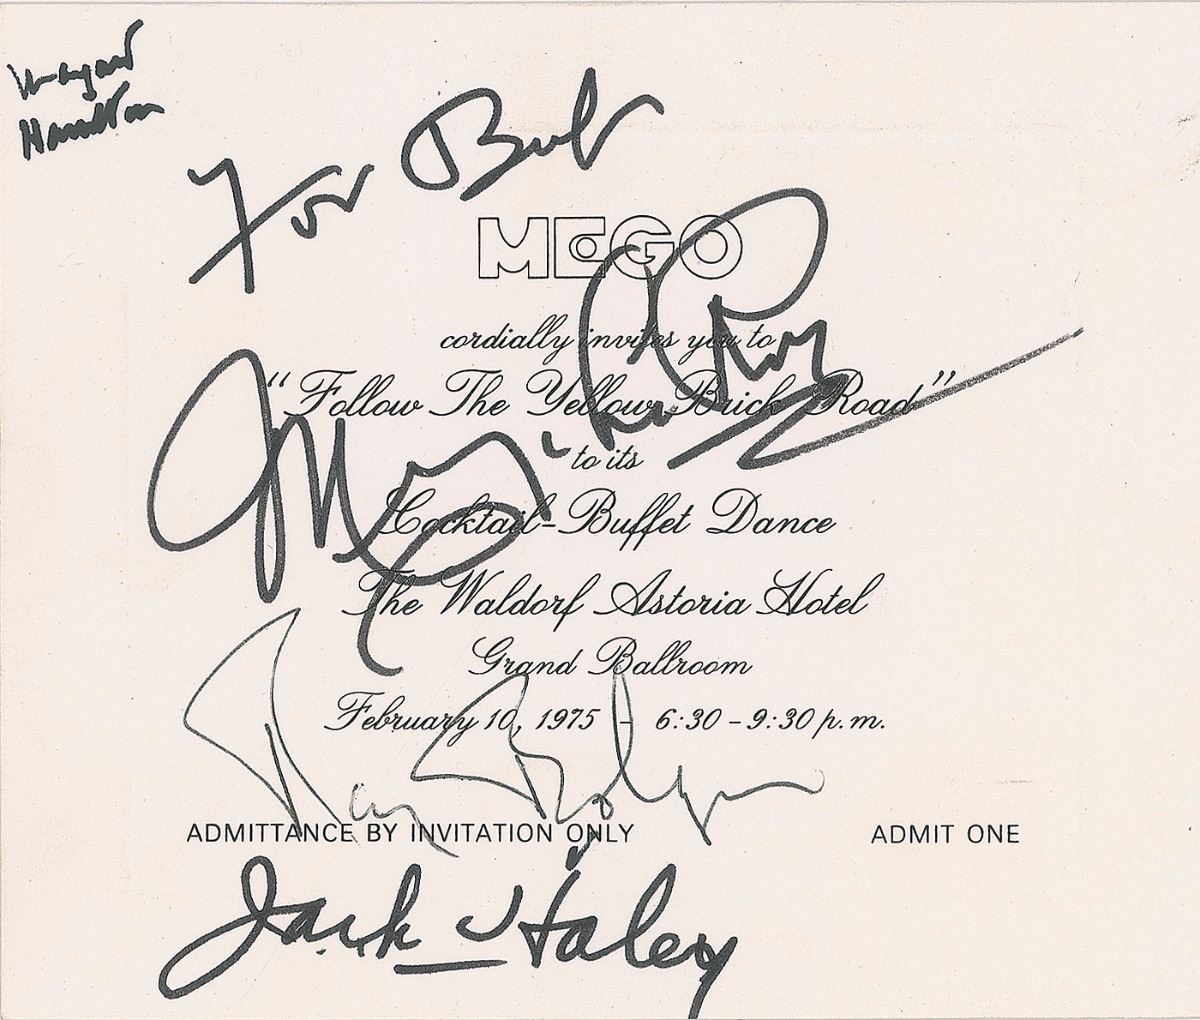 Hamilton
For
MEGO
cordially invites you to
"Follow The Yellow Brick Road"
to its
Cocktail-Buffet Dance
The Waldorf Astoria Hotel
Grand Ballroom
February 10, 1975 - 6:30 - 9:30 p.m.
Ray Bolger
ADMITTANCE BY INVITATION ONLY ADMIT ONE
Jack Haley